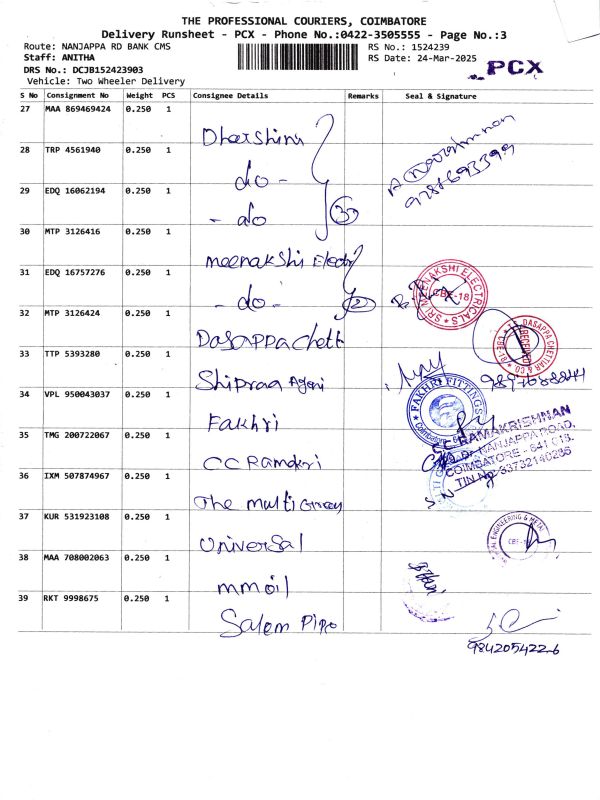 THE PROFESSIONAL COURIERS, COIMBATORE
Delivery Runsheet - PCX - Phone No.:0422-3505555 - Page No.:3
Route: NANJAPPA RD BANK CMS
RS No.: 1524239
Staff: ANITHA
RS Date: 24-Mar-2025
DRS No.: DCJB152423903
PCX
Vehicle: Two Wheeler Delivery
S No Consignment No Weight PCS Consignee Details Remarks Seal & Signature
27 MAA 869469424 0.250 1 Dharshini
28 TRP 4561940 0.250 1 do -
29 EDQ 16062194 0.250 1 - do
30 MTP 3126416 0.250 1 meenakshi Electri
31 EDQ 16757276 0.250 1 - do -
SRI MEENAKSHI ELECTRICALS
CBE-18
32 MTP 3126424 0.250 1 Dasappa Chett
DASAPPA CHETTIAR & CO
RECEIVED
33 TTP 5393280 0.250 1 Shipraa Ageni
34 VPL 950043037 0.250 1 Fakhri
FAKHRI FITTINGS
Coimbatore
35 TMG 200722067 0.250 1 CC Ramkri
C.C. RAMAKRISHNAN
NANJAPPA ROAD,
COIMBATORE - 641 018.
TIN No 33732140286
36 IXM 507874967 0.250 1 The multi
37 KUR 531923108 0.250 1 Universal
ENGINEERING & METAL
38 MAA 708002063 0.250 1 mm oil
39 RKT 9998675 0.250 1 Salem Pipe
9842054226